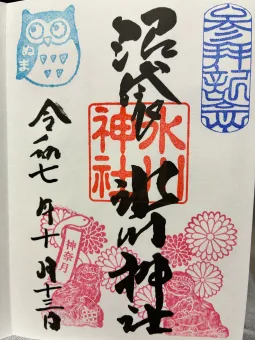 参拝記念
沼袋 氷川神社
氷川神社
ぬま
令和七年十月十三日
神奈月